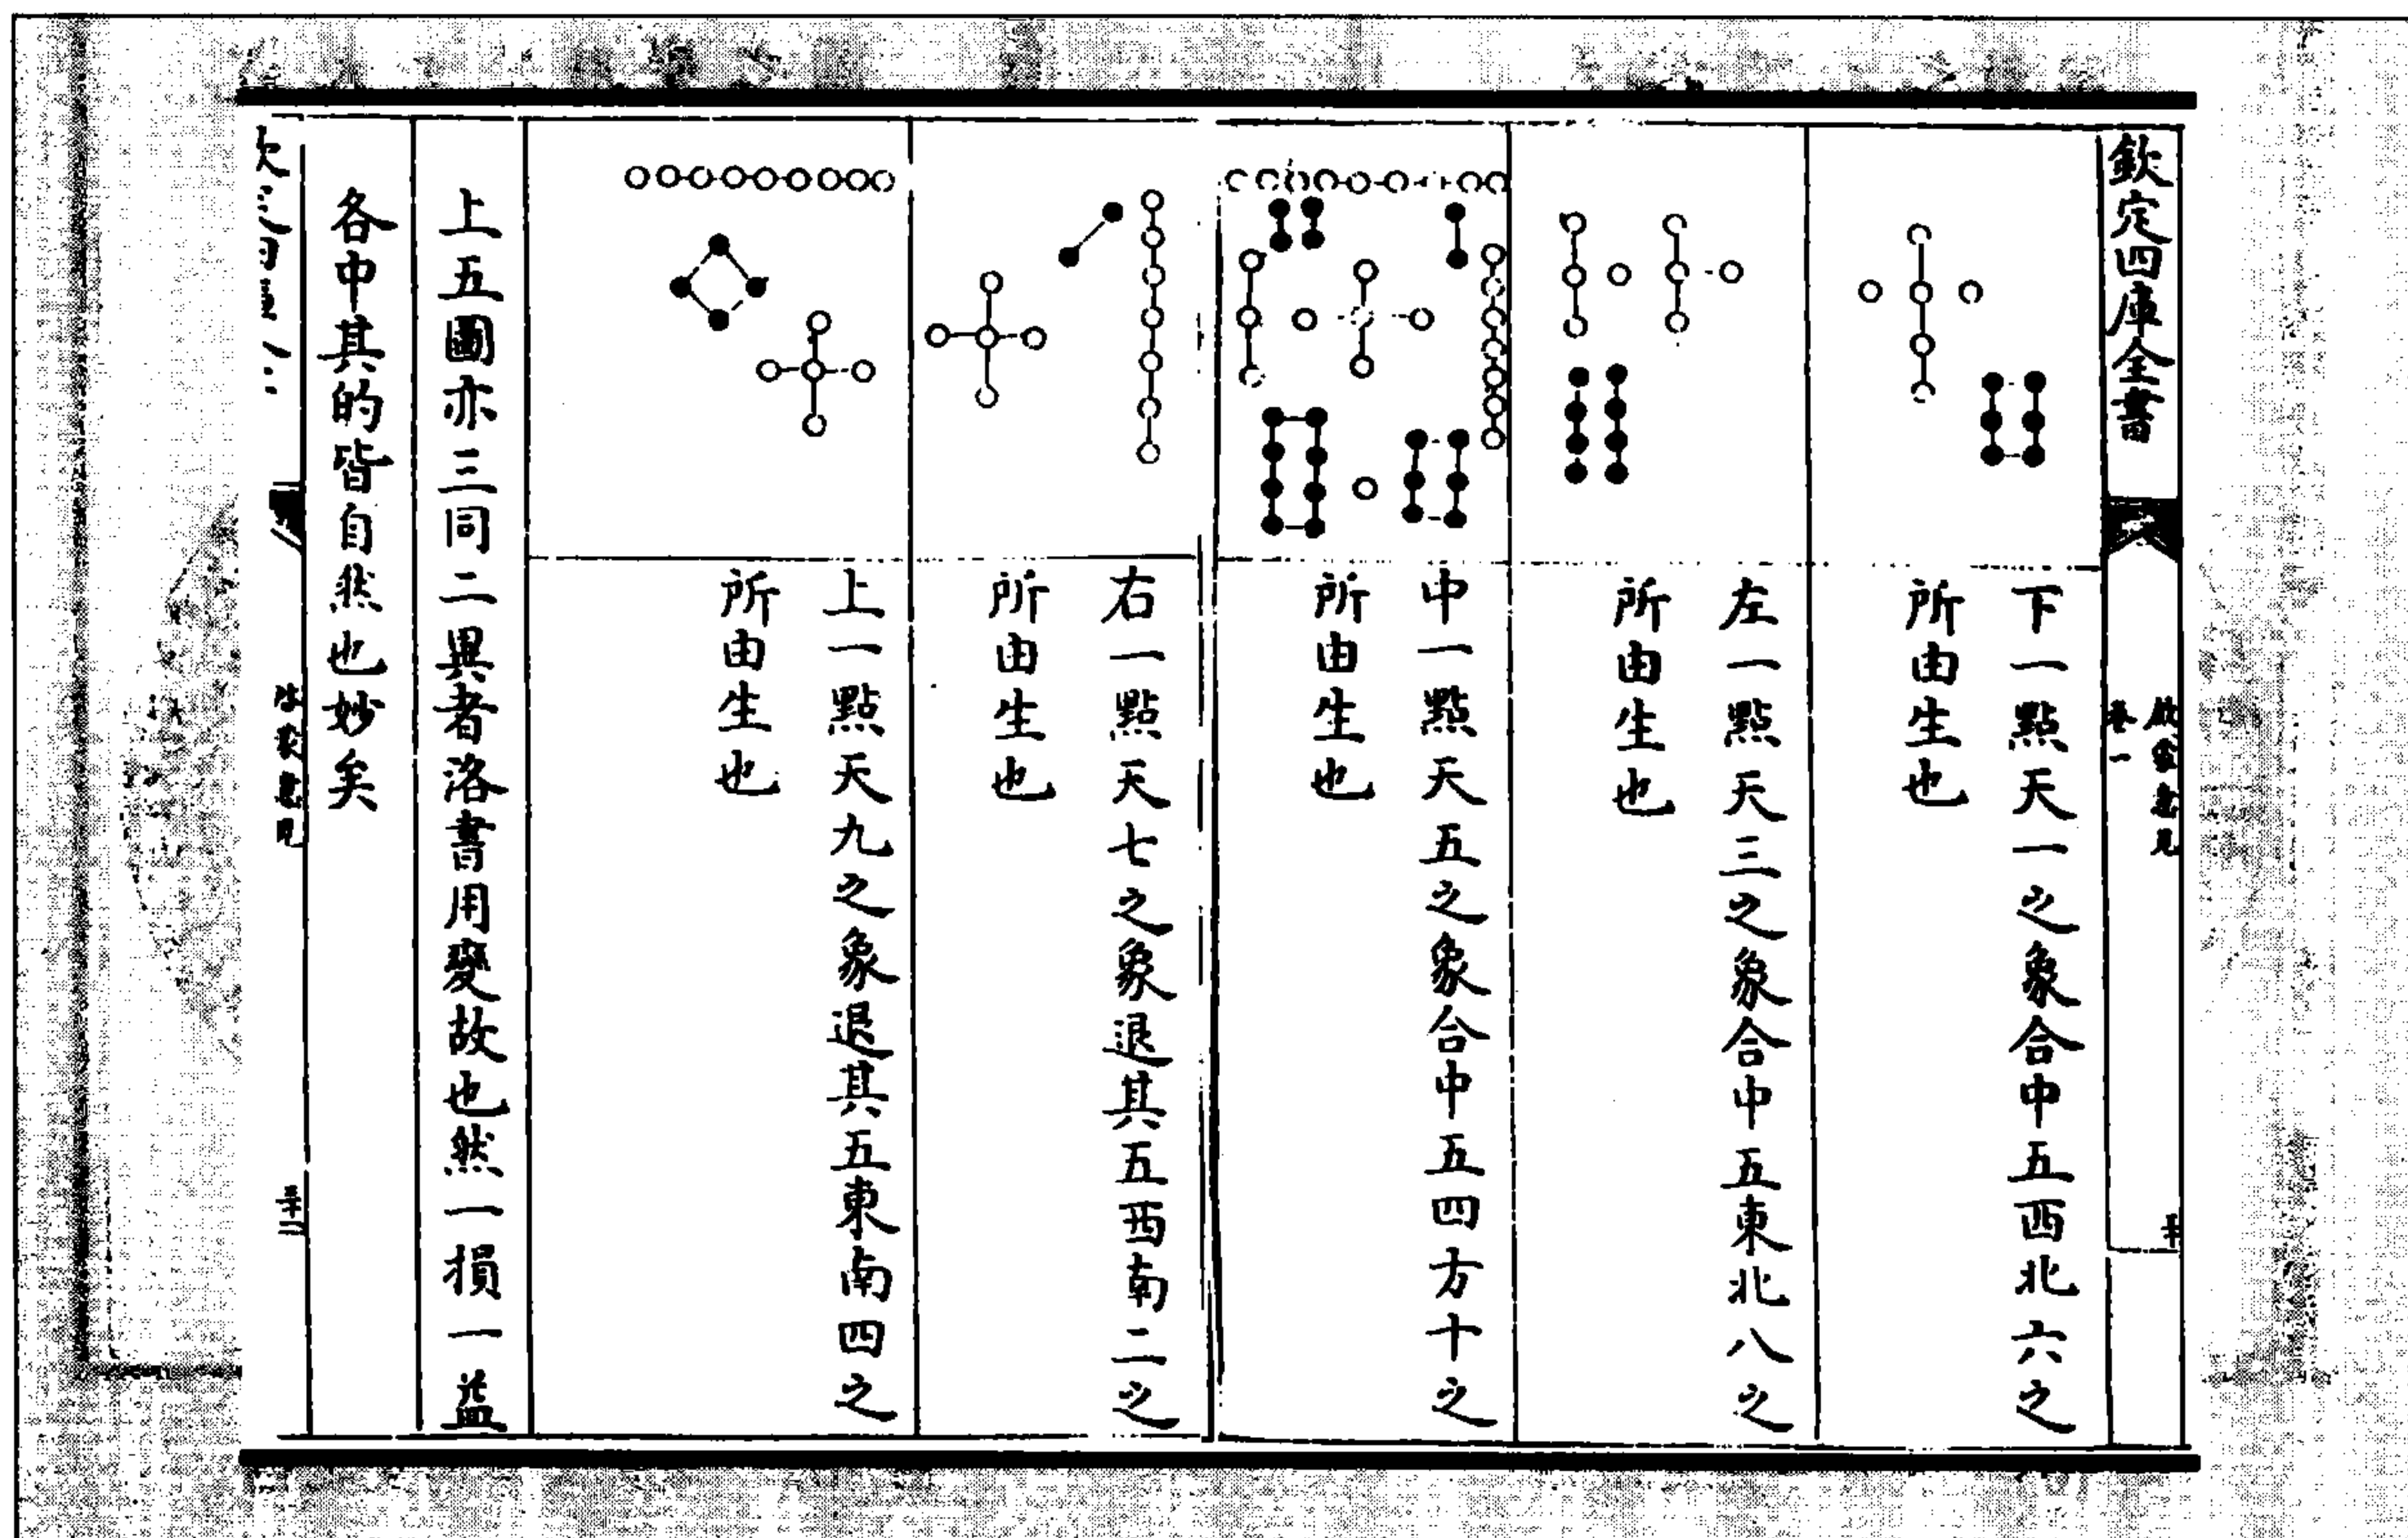 欽定四庫全書
啟蒙意見
卷一
下一點天一之象合中五西北六之
所由生也
左一點天三之象合中五東北八之
所由生也
中一點天五之象合中五四方十之
所由生也
右一點天七之象退其五西南二之
所由生也
上一點天九之象退其五東南四之
所由生也
上五圖亦三同二異者洛書用變故也然一損一益
各中其的皆自然也妙矣
啟蒙意見